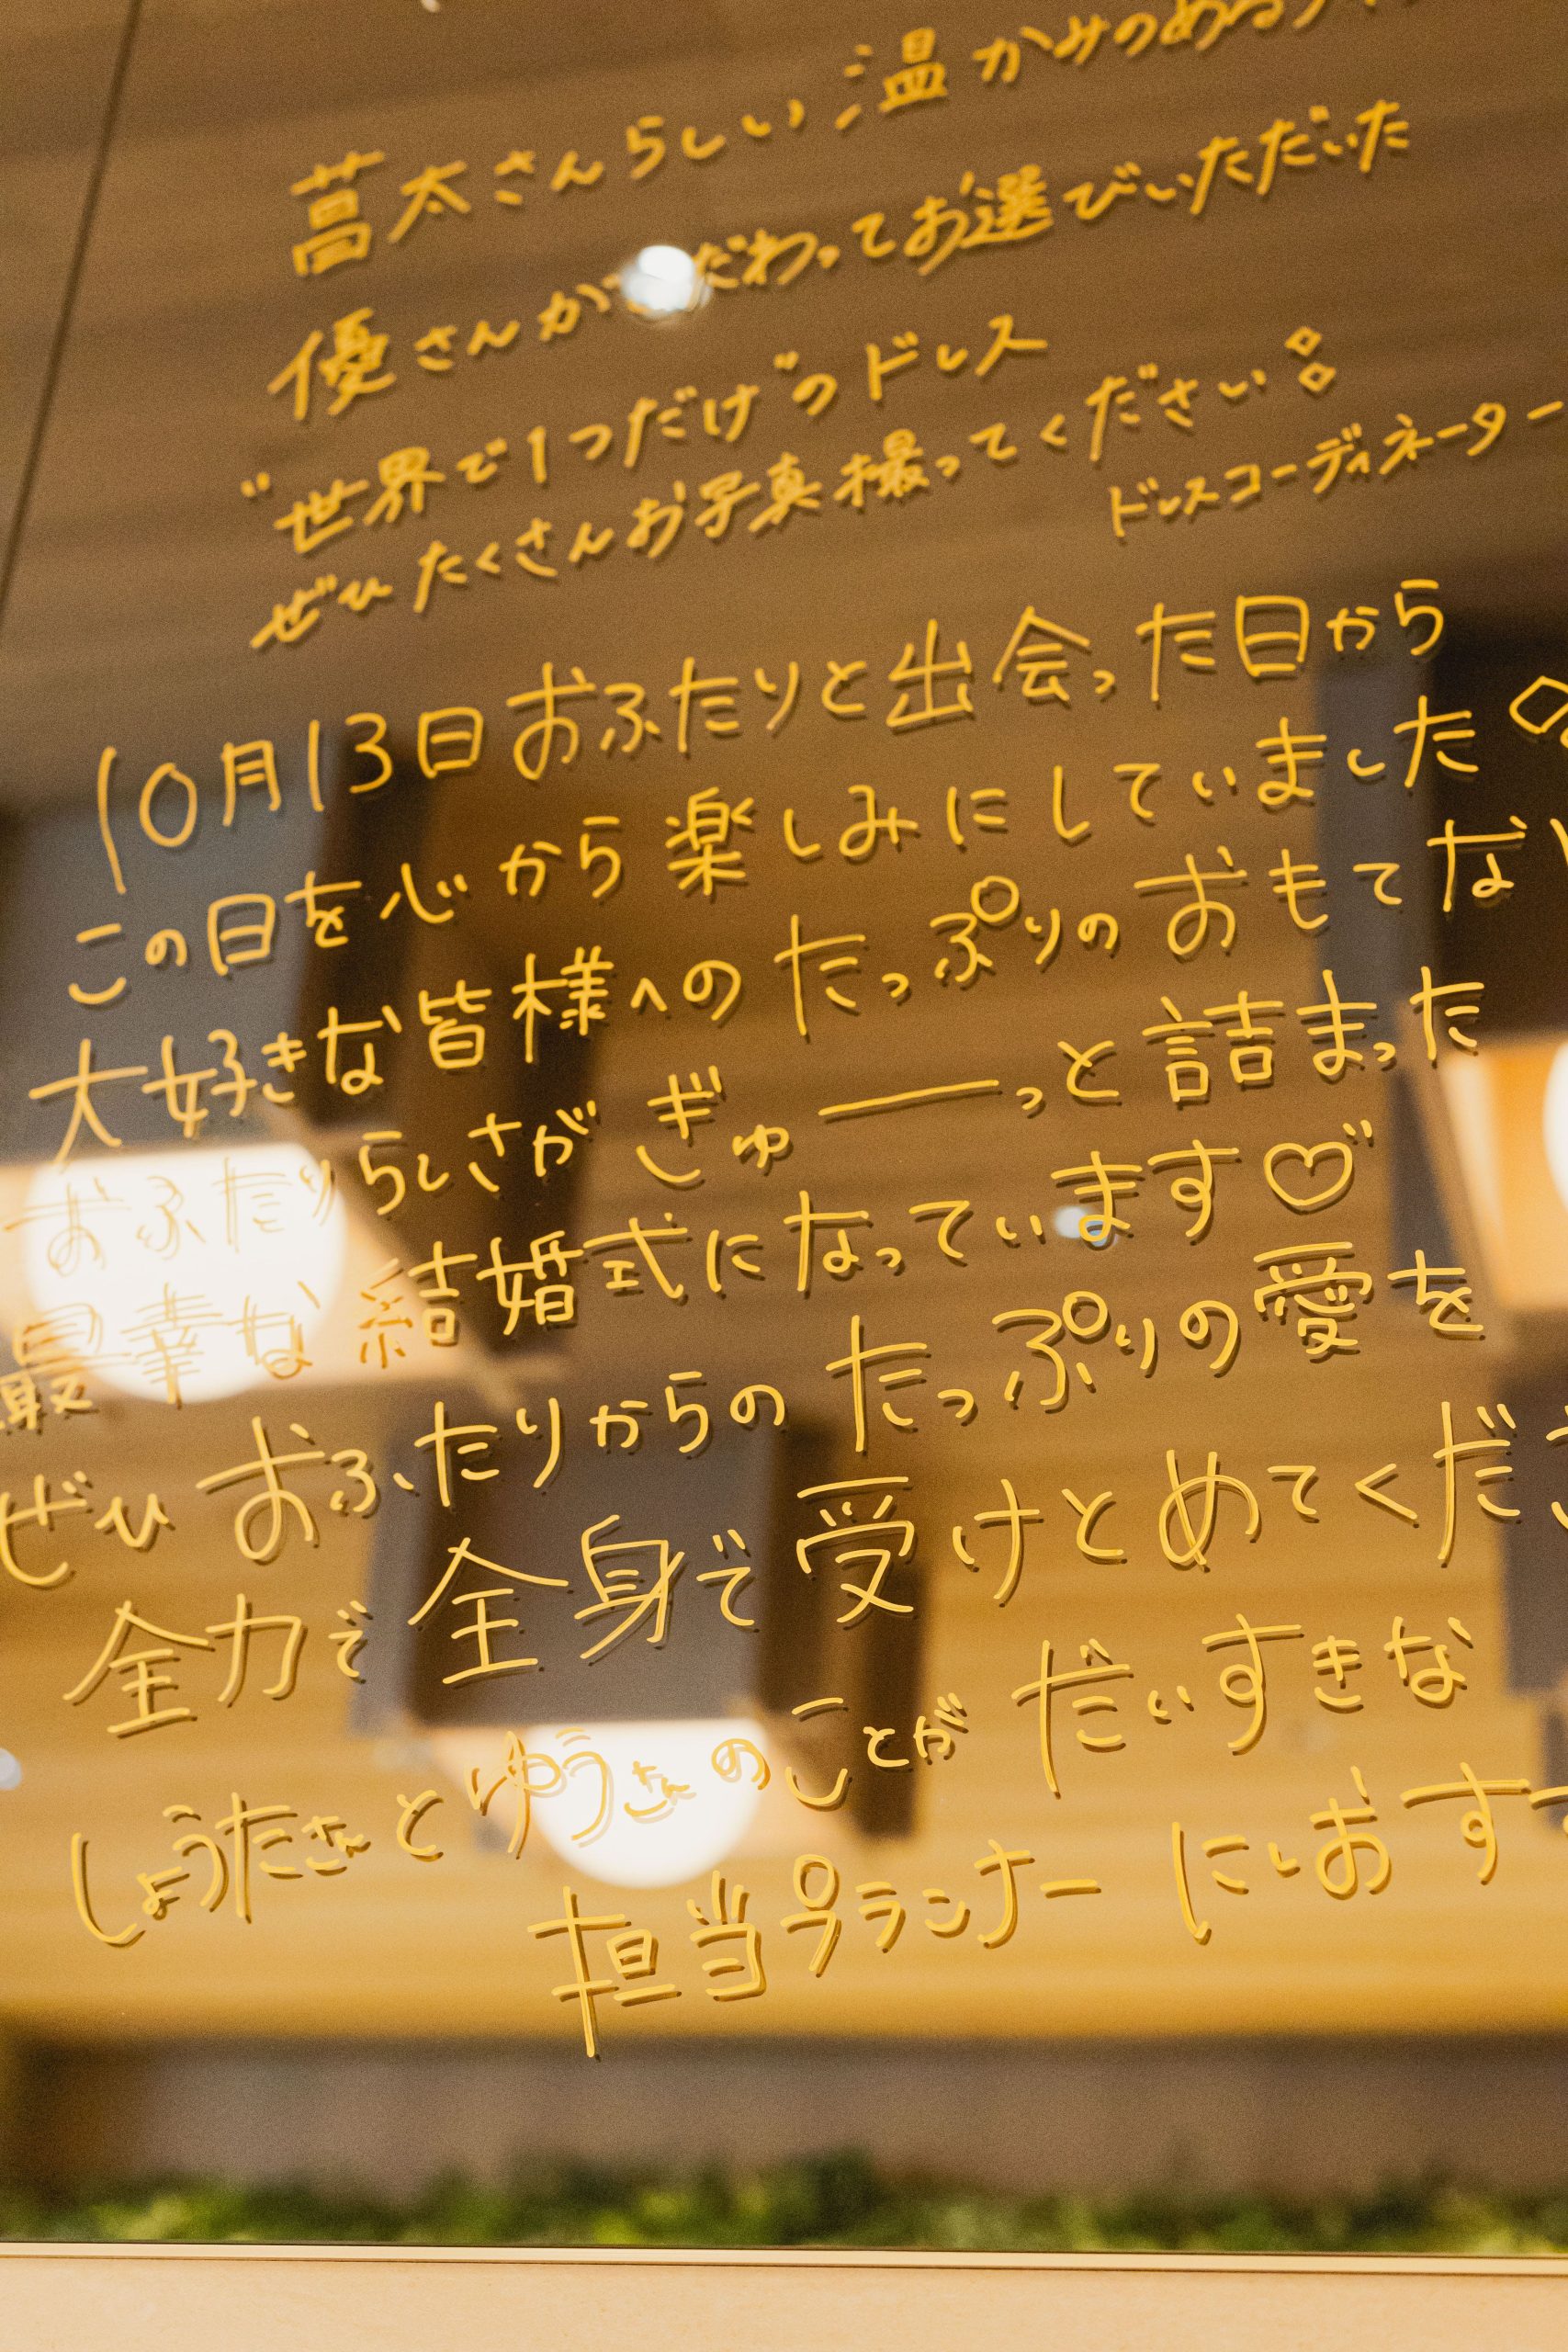 菖太さんらしい温かみのある
優さんがこだわってお選びいただいた
"世界で1つだけ"のドレス
ぜひたくさんお写真撮ってください
ドレスコーディネーター
10月13日おふたりと出会った日から
この日を心から楽しみにしていました
大好きな皆様へのたっぷりのおもてな
おふたりらしさがぎゅーっと詰まった
最幸な結婚式になっています♡
ぜひおふたりからのたっぷりの愛を
全力で全身で受けとめてくださ
しょうたさんとゆうさんのことがだいすきな
担当プランナー にしおすず